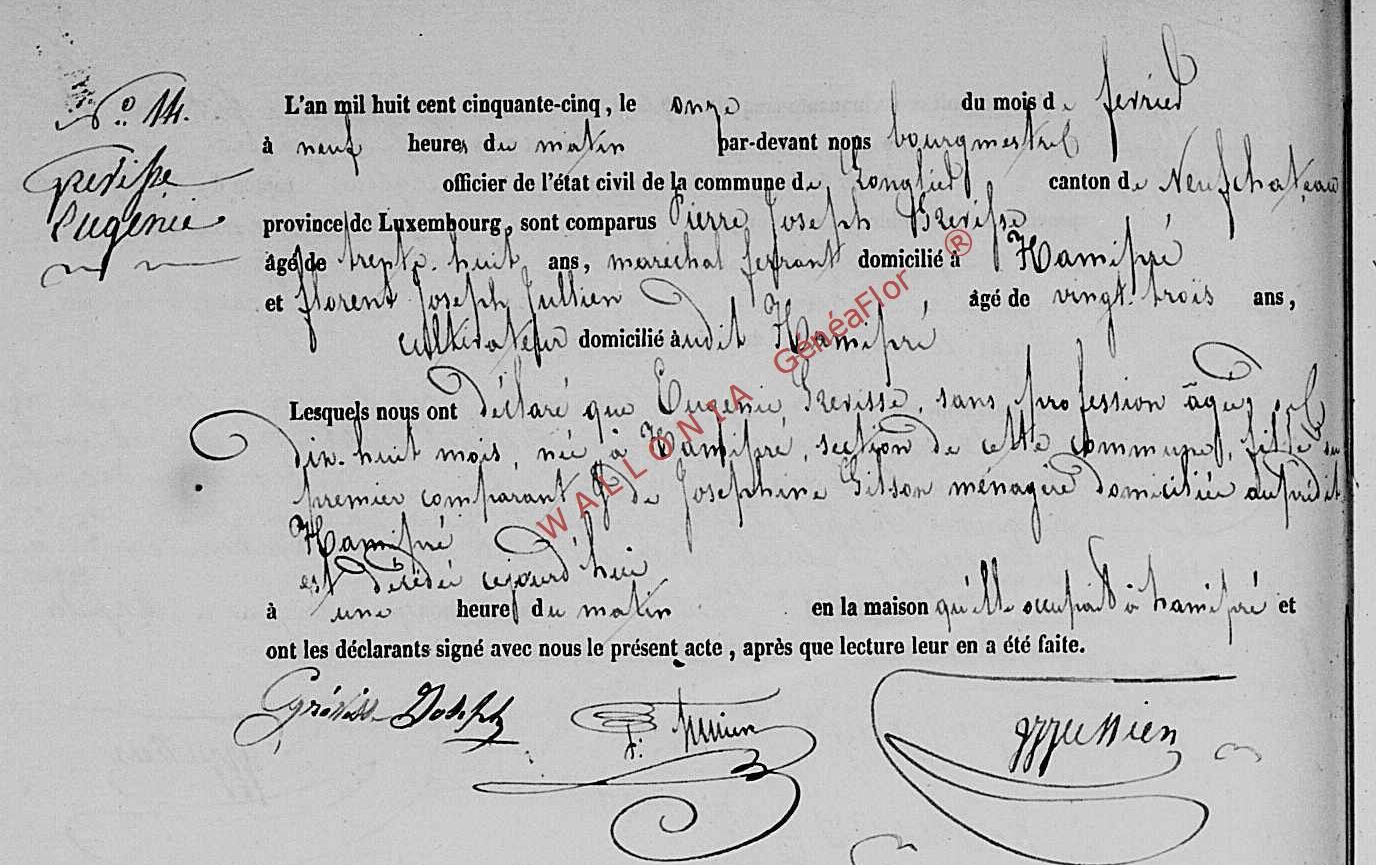 N.° 14.
Grevisse
Eugénie
L'an mil huit cent cinquante-cinq, le onze du mois de fevrier
à neuf heures du matin par-devant nous bourgmestre
officier de l'état civil de la commune de Longlier, canton de Neufchateau
province de Luxembourg, sont comparus Pierre Joseph Grevisse
âgé de trente-huit ans, marechal ferrant domicilié à Hamipré
et florent Joseph Jullien, âgé de vingt-trois ans,
cultivateur domicilié audit Hamipré
Lesquels nous ont déclaré que Eugenie Grevisse, sans profession âgée de
dix-huit mois, née à Hamipré, section de cette commune, fille du
premier comparant & de Josephine Gilson ménagère domiciliée au prédit
Hamipré
est décédée cejourd'hui
à une heures du matin en la maison qu'elle occupait à hamipré et
ont les déclarants signé avec nous le présent acte, après que lecture leur en a été faite.
Grévisse Joseph
WALLONIA GénéaFlor ®